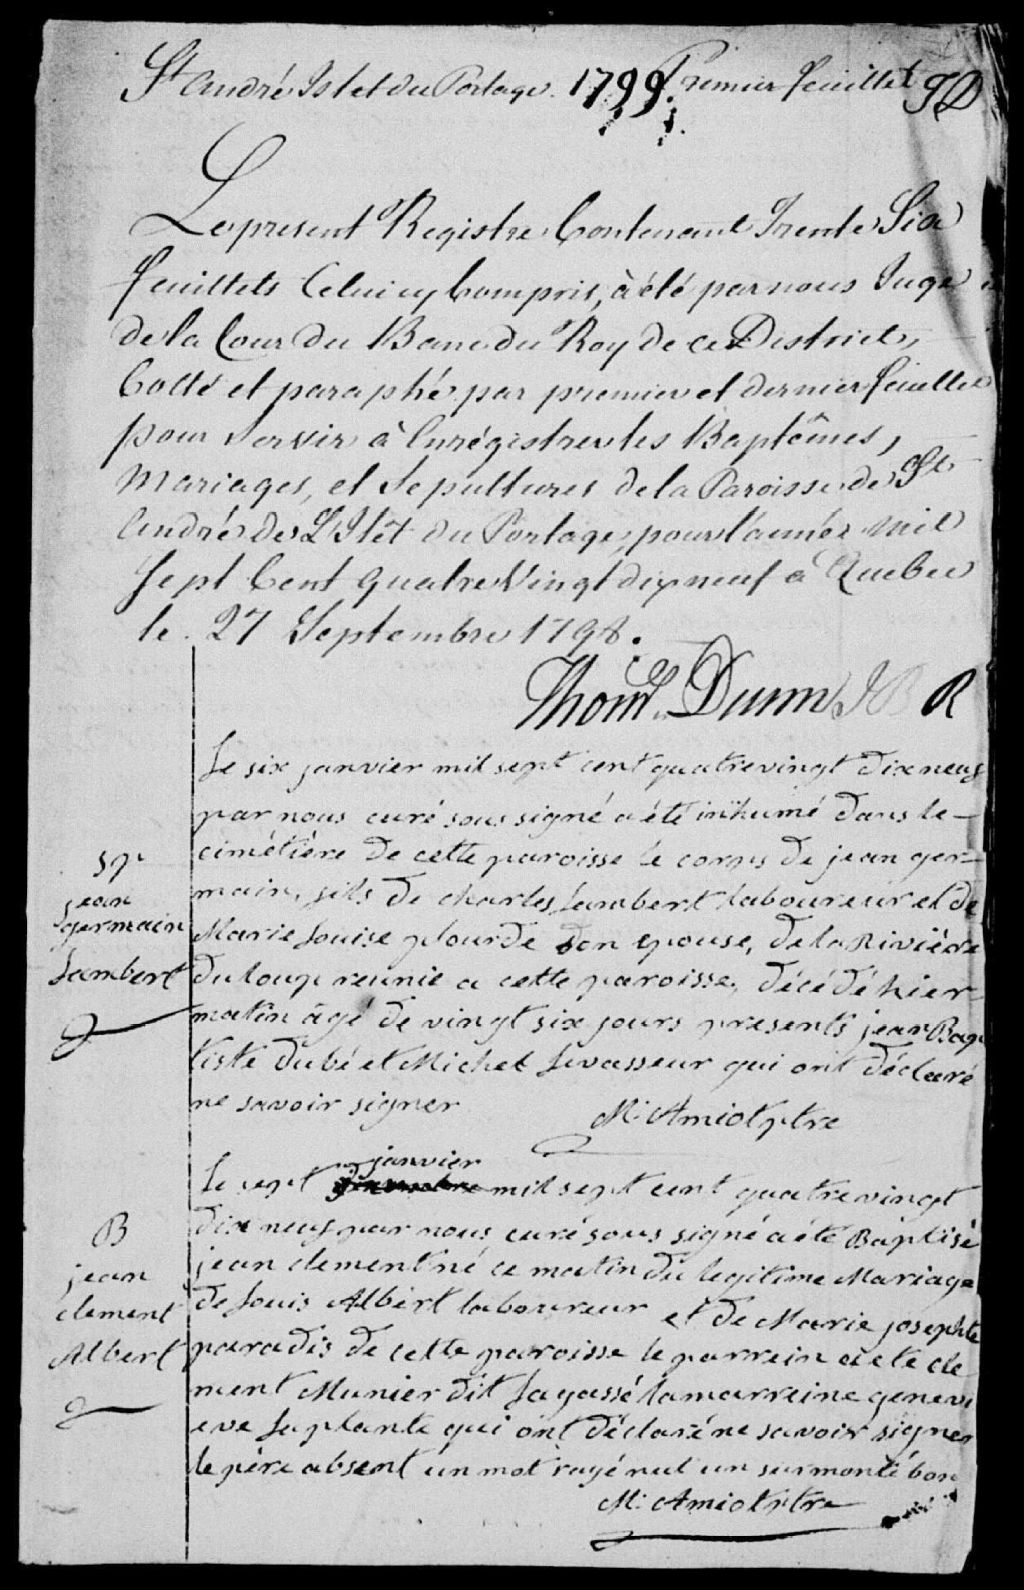 St André Islet du Portage. 1799. Premier feuillet TD
Le present Registre Contenant Trente Six
feuillets Celuicy Compris, à été par nous Juge
de la Cour du Banc du Roy de ce District,
Cotté et paraphé par premier et dernier feuillet
pour servir à Enrégistrer les Baptêmes,
Mariages, et Sepultures de la Paroisse de St
André de L'Ilêt du Portage, pour l'année Mil
Sept Cent Quatre Vingt dix neuf a Quebec
le 27 Septembre 1798.
Thos Dunn JBR
Le six janvier mil sept cent quatre vingt dix neuf
par nous curé sous signé a été inhumé dans le
cimétière de cette paroisse le corps de jean ger-
main, fils de charles Lambert laboureur et de
Marie Louise plourde son epouse, de la Rivière
du loup reunie a cette paroisse, décédé hier
matin âgé de vingt six jours presents jean Bap
tiste dubé et Michel Levasseur qui ont déclaré
ne savoir signer
M. Amiot ptre
Sp.
jean
germain
Lambert
janvier
Le sept mil sept cent quatre vingt
dix neuf par nous curé sous signé a été Baptisé
jean clement né ce matin du legitime Mariage
de Louis Albert laboureur et de Marie josephte
paradis de cette paroisse le parrein a ete cle
ment Munier dit Lagassé la marreine genevi
eve Laplante qui ont déclaré ne savoir signer
le père absent un mot rayé nul un surmonté bon
M. Amiot ptre
B
jean
clement
Albert